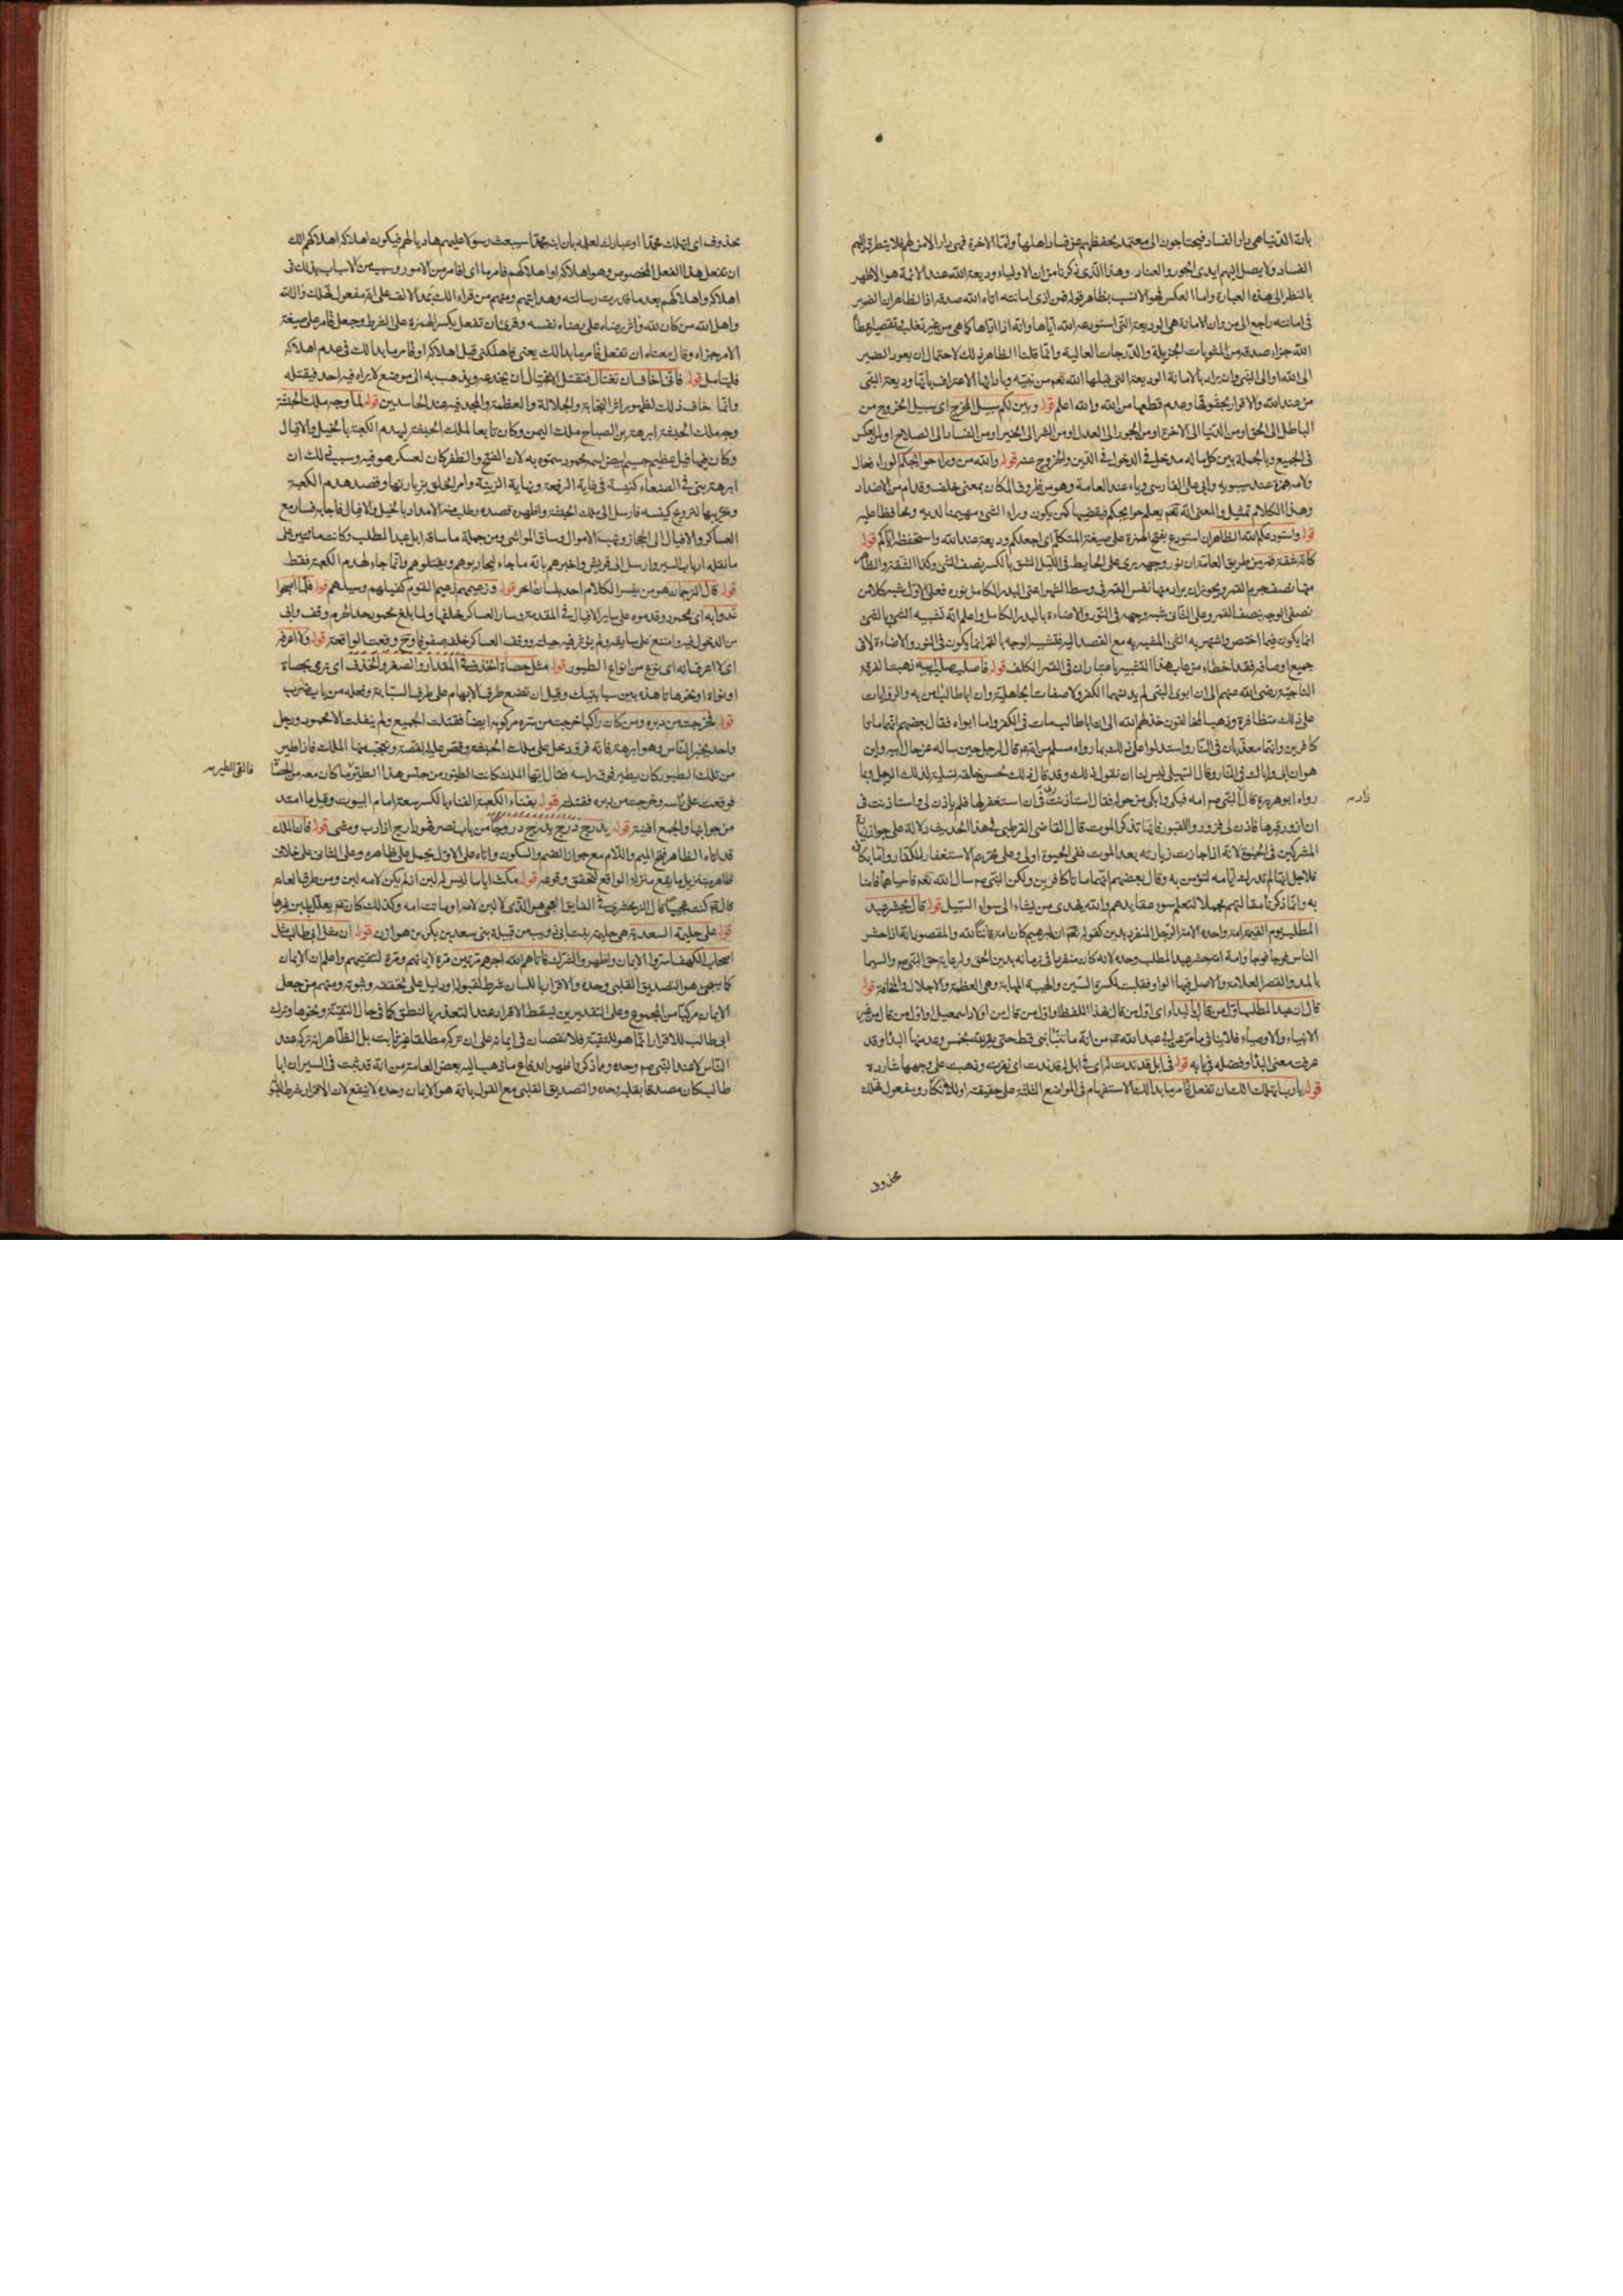 بان الدنيا هى دار الفساد فيحتاجون الى معتمد يحفظهم عن فساد اهلها واما الاخرة فهى دار الامن لهم فلا يتطرق اليهم
الفساد ولا يصل اليهم ايدى الجور والعناد وهذا الذى ذكرنا من ان الاولياء وديعة الله عند الائمة هو الاظهر
بالنظر الى هذه العبارة واما العكس فهو الانسب بظاهر قوله فمن ادى امانته اتاه الله صدقه اذ الظاهر ان الضمير
فى امانته راجع الى من وان الامانة هى الوديعة التى استودعه الله اياها وانه اذا اداها كما هى من غير تقصير اعطاه
الله جزاء صدقه من المثوبات الجزيلة والدرجات العالية وانما قلنا الظاهر ذلك لاحتمال ان يعود الضمير
الى الله او الى النبى وان يراد بالامانة الوديعة التى قبلها الله تعم من نبيه وبادائها الاعتراف بانها وديعة النبى
من عند الله والاقرار بحقوقها وعدم قطعها من الله والله اعلم قوله وبين لكم سبيل المخرج اى سبيل الخروج من
الباطل الى الحق او من الدنيا الى الاخرة او من الجور الى العدل او من الشر الى الخير او من الفساد الى الصلاح او بالعكس
فى الجميع وبالجملة بين كل ما له مدخل فى الدخول فى الدين والخروج عنه قوله والله من وراء حوائجكم الوراء فعال
ولامه همزة عند سيبويه وابى على الفارسى وياء عند العامة وهو من ظروف المكان بمعنى خلف وقدام من الاضداد
وهذا الكلام تمثيل والمعنى انه تعم يعلم حوايجكم فيقضيها كمن يكون وراء الشئ مهيمنا لديه ومحافظا عليه
قوله واستودعكم الله الظاهر ان استودع بفتح الهمزة على صيغة المتكلم اى اجعلكم وديعة عند الله واستحفظه اياكم قوله
كانه شقة قمر من طريق العامة ان نور وجهه يرى على الحايط فى الليل الشق بالكسر نصف الشئ وكذا الشقة والظاهر
منها نصف جرم القمر ويجوز ان يراد منها نفس القمر فى وسط الشهر اعنى البدر الكامل نوره فعلى الاول شبه كلا من
نصفى الوجه بنصف القمر وعلى الثانى شبه وجهه فى النور والاضاءة بالبدر الكامل واعلم انه تشبيه الشئ بالشئ
انما يكون فيما اختص واشتهر به الشئ المشبه به مع القصد اليه فتشبيه الوجه بالقمر انما يكون فى النور والاضاءة لا فى
جميع اوصافه فقد اخطاء من عاب هذا التشبيه باعتبار ان فى القمر الكلف قوله فاصلب صلب ابيه ذهبت الفرقة
الناجية رضى الله عنهم الى ان ابوى النبى لم يدنسهما الكفر ولا صفات الجاهلية وان ابا طالب امن به والروايات
على ذلك متظافرة وذهب المخالفون خذلهم الله الى ان ابا طالب مات فى الكفر واما ابواه فقال بعضهم انهما ماتا
كافرين وانهما معذبان فى النار واستدلوا على ذلك بما رواه مسلم من انه قال لرجل حين ساله عن حال ابيه واين
هو ان ابى واباك فى النار وقال السهيلى ليس لنا ان نقول ذلك وقد قال ذلك لحسن خلقه تسلية لذلك الرجل وبما
رواه ابو هريرة قال زار النبى ص امه فبكى وابكى من حوله فقال استاذنت ربى فى ان استغفر لها فلم ياذن لى واستاذنت فى
ان ازور قبرها فاذن لى فزوروا القبور فانها تذكر الموت قال القاضى القرطبى فى هذا الحديث دلالة على جواز زيارة
المشركين فى الحيوة لانه اذا جازت زيارته بعد الموت ففى الحيوة اولى وعلى تحريم الاستغفار للكفار واما بكاؤه
فلاجل انها لم تدرك ايامه لتؤمن به وقال بعضهم انهما ماتا كافرين ولكن النبى ص سال الله تعم فاحياهما فامنا
به وانما ذكرنا مقالتهم مجملا لتعلم سوء عقايدهم والله يهدى من يشاء الى سواء السبيل قوله قال يحشر عبد
المطلب يوم القيمة امة واحدة الامة الرجل المنفرد بدين كقوله تعم ان ابرهيم كان امة قانتا لله والمقصود انه اذا حشر
الناس فوجا فوجا وامة امة حشر عبد المطلب وحده لانه كان منفردا فى زمانه بدين الحق ولرعاية حق النبى ص والسيما
بالمد والقصر العلامة والاصل فيها الواو فقلبت لكسرة السين والهيبة المهابة وهى العظمة والاجلال والمخافة قوله
قال ان عبد المطلب اول من قال بالبداء اى اول من قال بهذا اللفظ او اول من قال من اولاد اسمعيل او اول من قال من غير
الانبياء والاوصياء فلا ينافى ما مر عن ابى عبد الله عم من انه ما تنبا نبى قط حتى يقر لله بخمس وعد منها البداء وقد
عرفت معنى البداء وفضله فى بابه قوله فى ابل قد ندت له اى فى ابل له قد ندت اى نفرت وذهبت على وجهها شاردة
قوله يا رب اتهلك الك ان تفعل فامر ما بدا لك الاستفهام فى المواضع الثلثة على حقيقته او للانكار ومفعول تهلك
محذوف
زار ص
محذوف اى اتهلك محمدا او عبادك لعلمه بان ابنه محمدا سيبعث رسولا عليهم هاديا لهم فيكون اهلاكه اهلاكهم الك
ان تفعل هذا الفعل المخصوص وهو اهلاكه او اهلاكهم فامر بها اى فامر من الامور وسبب من الاسباب بذلك فى
اهلاكه واهلاكهم بعد ما قدرت رسالته وهدايتهم ومنهم من قراء الك بمد الالف على انه مفعول تهلك وال الله
واهل الله من كان لله واثر رضاه على رضاء نفسه وقرئ ان تفعل بكسر الهمزة على الشرط وجعل فامر على صيغة
الامر جزاءه وقال معناه ان تفعل فامر ما بدا لك يعنى فاهلكنى قبل اهلاكه او فامر ما بدا لك فى عدم اهلاكه
فليتامل قوله فانى اخاف ان تغتال فتقتل الاغتيال ان يخدعه ويذهب به الى موضع لا يراه فيه احد فيقتله
وانما خاف ذلك لظهور اثر النجابة والجلالة والعظمة والمجد فيه عند الحاسدين قوله لما وجه ملك الحبشة
وجه ملك الحبشة ابرهة بن الصباح ملك اليمن وكان تابعا لملك الحبشة ليهدم الكعبة بالخيل والافيال
وكان فيها فيل عظيم جسيم ابيض اسمه محمود سموه به لان الفتح والظفر كان لعسكر هو فيه وسبب ذلك ان
ابرهة بنى فى الصنعاء كنيسة فى غاية الرفعة ونهاية الزينة وامر الخلق بزيارتها وقصد هدم الكعبة
وتخريبها لترويج كنيسه فارسل الى ملك الحبشة واظهره قصده وطلب منه الامداد بالخيل والافيال فاجابه فسار مع
العساكر والافيال الى الحجاز ونهب الاموال وساق المواشى ومن جملة ما ساقه ابل عبد المطلب وكانت مائتين على
ما نقله ارباب السير وارسل الى قريش واخبرهم بانه ما جاء ليحاربوهم ويقتلوهم وانما جاء لهدم الكعبة فقط
قوله قال الترجمان هو من يفسر الكلام احد بلسان اخر قوله وزعيمهم زعيم القوم كفيلهم وسيدهم قوله فلما اصبحوا
غدوا به اى بمحمود وقدموه على ساير الافيال فى المقدمة وسار العساكر خلفها ولما بلغ محمود حد الحرم وقف وابى
من الدخول فيه وامتنع على سايقه ولم يؤثر فيه حيلته ووقف العساكر خلفه صفوفا وح وقعت الواقعة قوله ولا اعرفه
اى لا اعرف انه اى نوع من انواع الطيور قوله مثل حصاة الخذف فى المقدار والصغر والخذف اى ترمى بحصاة
او نواة او نحوهما تاخذه بين سبابتيك وقيل ان تضع طرف الابهام على طرف السبابة وفعله من باب ضرب
قوله فخرجت من دبره ومن كان راكبا خرجت من سرة مركوبه ايضا فقتلت الجميع ولم ينفلت الا محمود ورجل
واحد يخبر الناس وهو ابرهة فانه فر ودخل على ملك الحبشة وقص عليه القصة وتعجب منها الملك فاذا طير
من تلك الطيور كان يطير فوق راسه فقال ايها الملك كانت الطيور من جنس هذا الطير ما كان معه من الحصا
فالقى الطير ص
فوقعت على راسه وخرجت من دبره فقتلته قوله بفناء الكعبة الفناء بالكسر سعة امام البيوت وقيل ما امتد
من جوانبها والجمع افنية قوله يدرج درج يدرج دروجا من باب نصر فهو دارج اذا دب ومشى قوله فان الملك
قد اتاه الظاهر فتح الميم واللام مع جواز الضم والسكون واتاه على الاول يحمل على ظاهره وعلى الثانى على خلاف
ظاهره بتنزيل ما يقع منزلة الواقع لتحقق وقوعه قوله مكث اياما ليس له لبن اذ لم يكن لامه لبن ومن طرق العامة
قال ص كنت عجيا قال الزمخشرى فى الفايق العجى هو الذى لا لبن لامه او ماتت امه وكذلك كان عم يعلل بلبن غيرها
قوله على حليمة السعدية هى حليمة بنت ابى ذويب من قبيلة بنى سعد بن بكر بن هوازن قوله ان مثل ابى طالب مثل
اصحاب الكهف اسروا الايمان واظهروا الشرك فاتاهم الله اجرهم مرتين مرة لايمانهم ومرة لتقيتهم واعلم ان الايمان
كما سيجئ هو التصديق القلبى وحده والاقرار باللسان شرط لقبوله او دليل على تحققه وثبوته ومنهم من جعل
الايمان مركبا من المجموع وعلى التقديرين يسقط الاقرار عند التعذر بالنطق كما فى حال التقية ونحوها وترك
ابى طالب للاقرار انما هو للتقية فلا نقصان فى ايمانه على ان تركه مطلقا غير ثابت بل الظاهر انه تركه عند
الناس لا عند النبى ص وحده وبما ذكرنا ظهر اندفاع ما ذهب اليه بعض العامة من انه قد ثبت فى السير ان ابا
طالب كان مصدقا بقلبه وحده والتصديق القلبى مع القول بانه هو الايمان وحده لا ينفع لان الاقرار شرط لقبوله